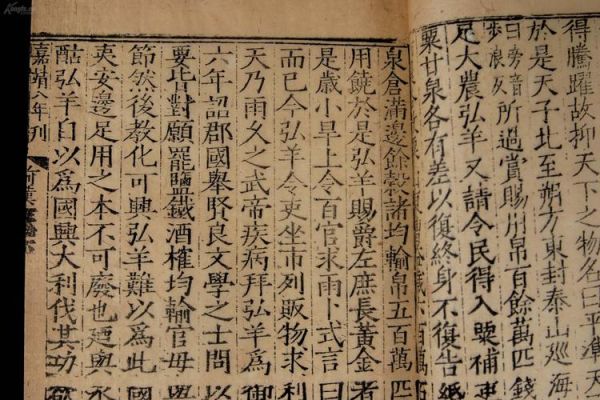 得騰躍故抑天下之物名曰平準天
於是天子北至朔方東封泰山巡海
曰旁音
步浪反
所過賞賜用帛百餘萬匹錢
足大農弘羊又請令民得入粟補吏
粟甘泉各有差以復終身不復告緡
泉倉滿邊餘穀諸均輸帛五百萬匹
用饒於是弘羊賜爵左庶長黃金者
是歲小旱上令百官求雨卜式言曰
而已今弘羊令吏坐市列販物求利
天乃雨久之武帝疾病拜弘羊爲御
六年詔郡國舉賢良文學之士問以
要皆對願罷鹽鐵酒榷均輸官毋與
節然後教化可興弘羊難以爲此國
夷安邊足用之本不可廢也迺與水
酤弘羊自以爲國興大利伐其功欲
嘉靖八年刊
前漢